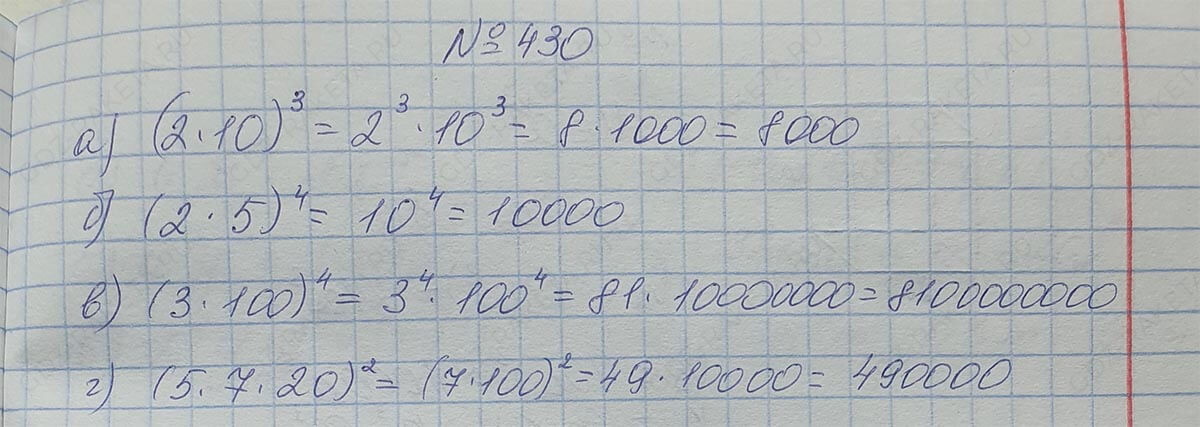 № 430
а) (2·10)³ = 2³·10³ = 8·1000 = 8000
б) (2·5)⁴ = 10⁴ = 10000
в) (3·100)⁴ = 3⁴·100⁴ = 81·100000000 = 8100000000
г) (5·7·20)² = (7·100)² = 49·10000 = 490000